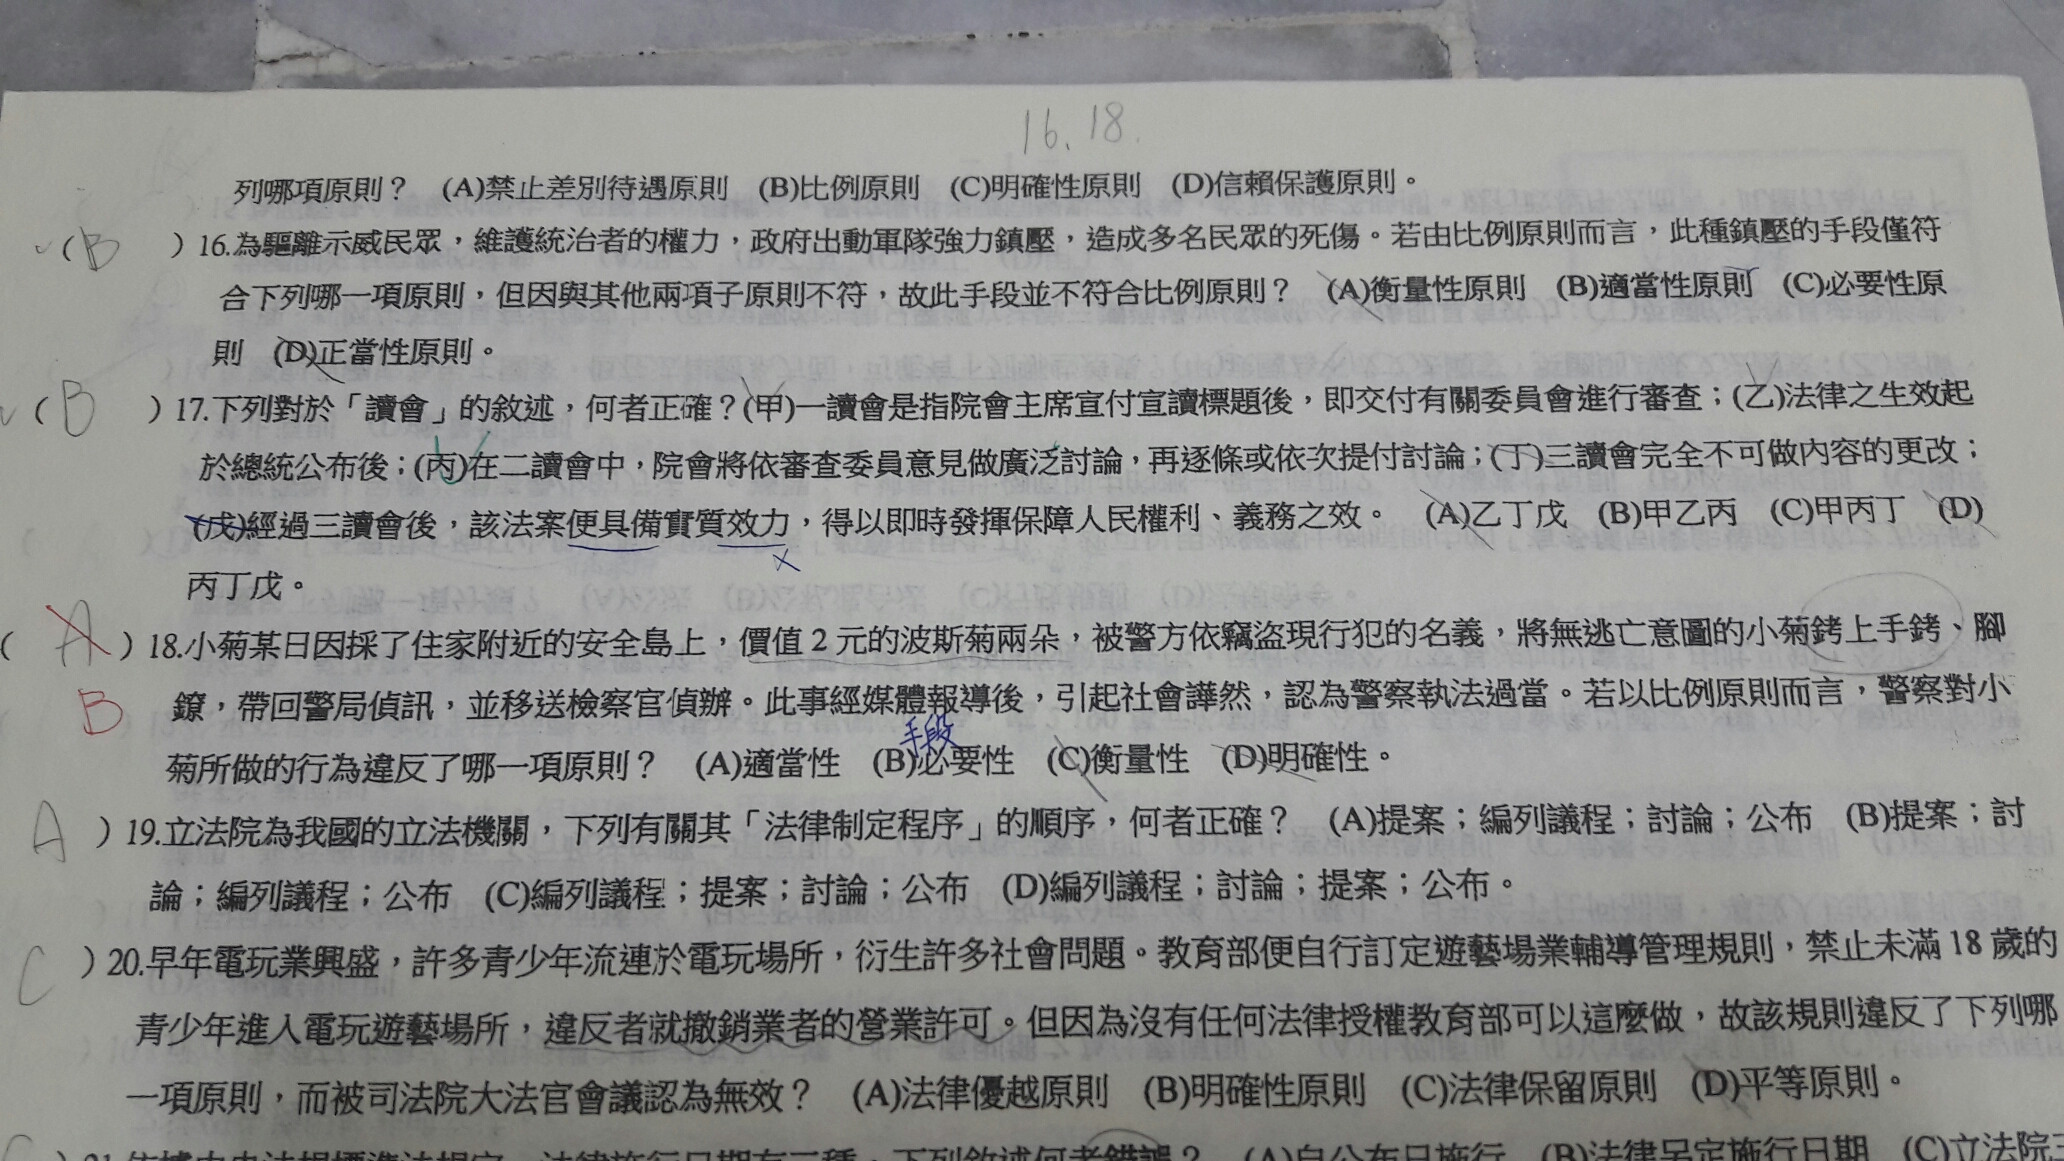 16.18.
列哪項原則？ (A)禁止差別待遇原則 (B)比例原則 (C)明確性原則 (D)信賴保護原則。
(B )16.為驅離示威民眾，維護統治者的權力，政府出動軍隊強力鎮壓，造成多名民眾的死傷。若由比例原則而言，此種鎮壓的手段僅符
合下列哪一項原則，但因與其他兩項子原則不符，故此手段並不符合比例原則？ (A)衡量性原則 (B)適當性原則 (C)必要性原
則 (D)正當性原則。
(B )17.下列對於「讀會」的敘述，何者正確？(甲)一讀會是指院會主席宣付宣讀標題後，即交付有關委員會進行審查；(乙)法律之生效起
於總統公布後；(丙)在二讀會中，院會將依審查委員意見做廣泛討論，再逐條或依次提付討論；(丁)三讀會完全不可做內容的更改；
(戊)經過三讀會後，該法案便具備實質效力，得以即時發揮保障人民權利、義務之效。 (A)乙丁戊 (B)甲乙丙 (C)甲丙丁 (D)
x
丙丁戊。
( A )18.小菊某日因採了住家附近的安全島上，價值2元的波斯菊兩朵，被警方依竊盜現行犯的名義，將無逃亡意圖的小菊銬上手銬、腳
B
鐐，帶回警局偵訊，並移送檢察官偵辦。此事經媒體報導後，引起社會譁然，認為警察執法過當。若以比例原則而言，警察對小
手段
菊所做的行為違反了哪一項原則？ (A)適當性 (B)必要性 (C)衡量性 (D)明確性。
A )19.立法院為我國的立法機關，下列有關其「法律制定程序」的順序，何者正確？ (A)提案；編列議程；討論；公布 (B)提案；討
論；編列議程；公布 (C)編列議程；提案；討論；公布 (D)編列議程；討論；提案；公布。
C )20.早年電玩業興盛，許多青少年流連於電玩場所，衍生許多社會問題。教育部便自行訂定遊藝場業輔導管理規則，禁止未滿18歲的
青少年進入電玩遊藝場所，違反者就撤銷業者的營業許可。但因為沒有任何法律授權教育部可以這麼做，故該規則違反了下列哪
一項原則，而被司法院大法官會議認為無效？ (A)法律優越原則 (B)明確性原則 (C)法律保留原則 (D)平等原則。
C )21.依據中央法規標準法規定，法律施行日期有三種，下列敘述何者錯誤？ (A)自公布日施行 (B)法律另定施行日期 (C)立法院三